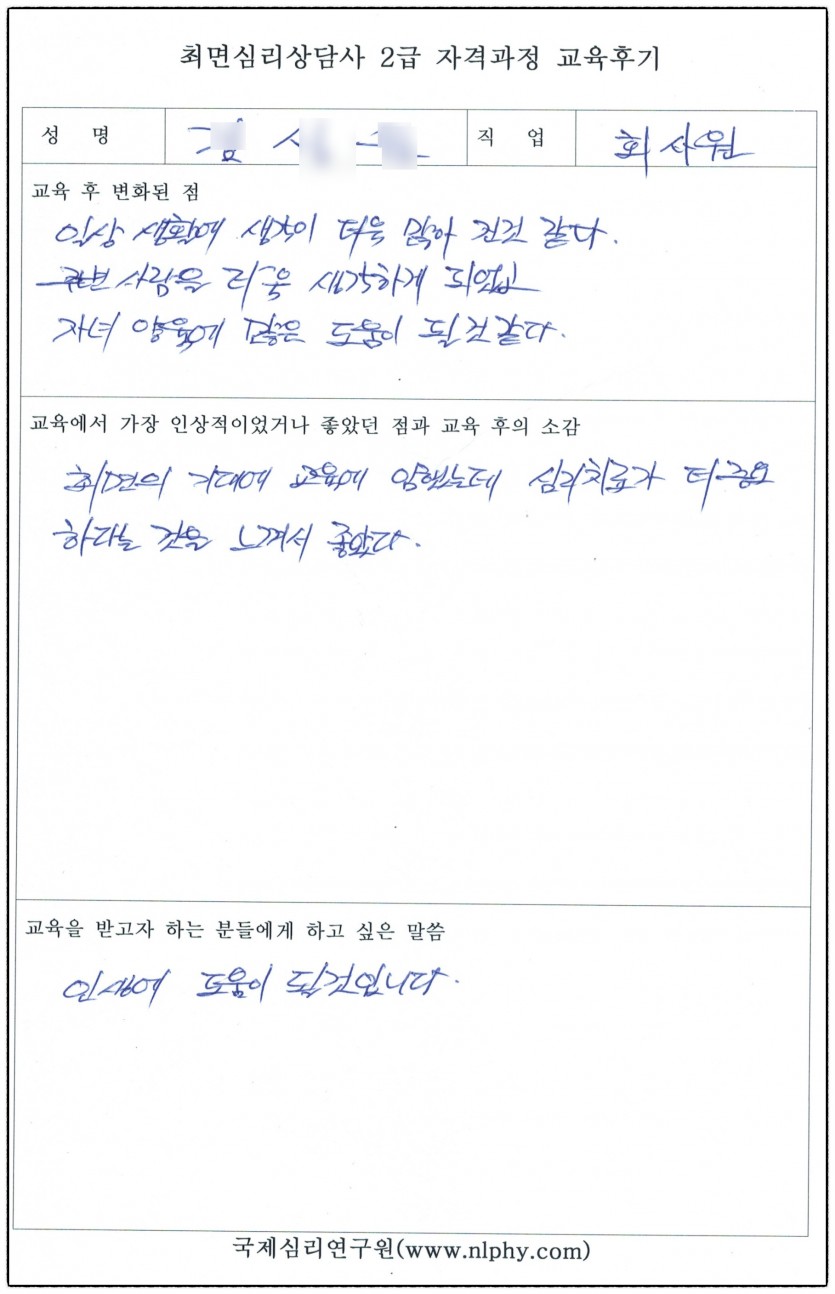 최면심리상담사 2급 자격과정 교육후기
성 명 직 업 회사원
교육 후 변화된 점
일상 생활에 생각이 더욱 맑아 진것 같다.
주변 사람을 더욱 생각하게 되었고
자녀 양육에 많은 도움이 될것같다.
교육에서 가장 인상적이었거나 좋았던 점과 교육 후의 소감
최면의 기대에 교육에 임했는데 심리치료가 더 중요
하다는 것을 느껴서 좋았다.
교육을 받고자 하는 분들에게 하고 싶은 말씀
인생에 도움이 될것입니다.
국제심리연구원(www.nlphy.com)